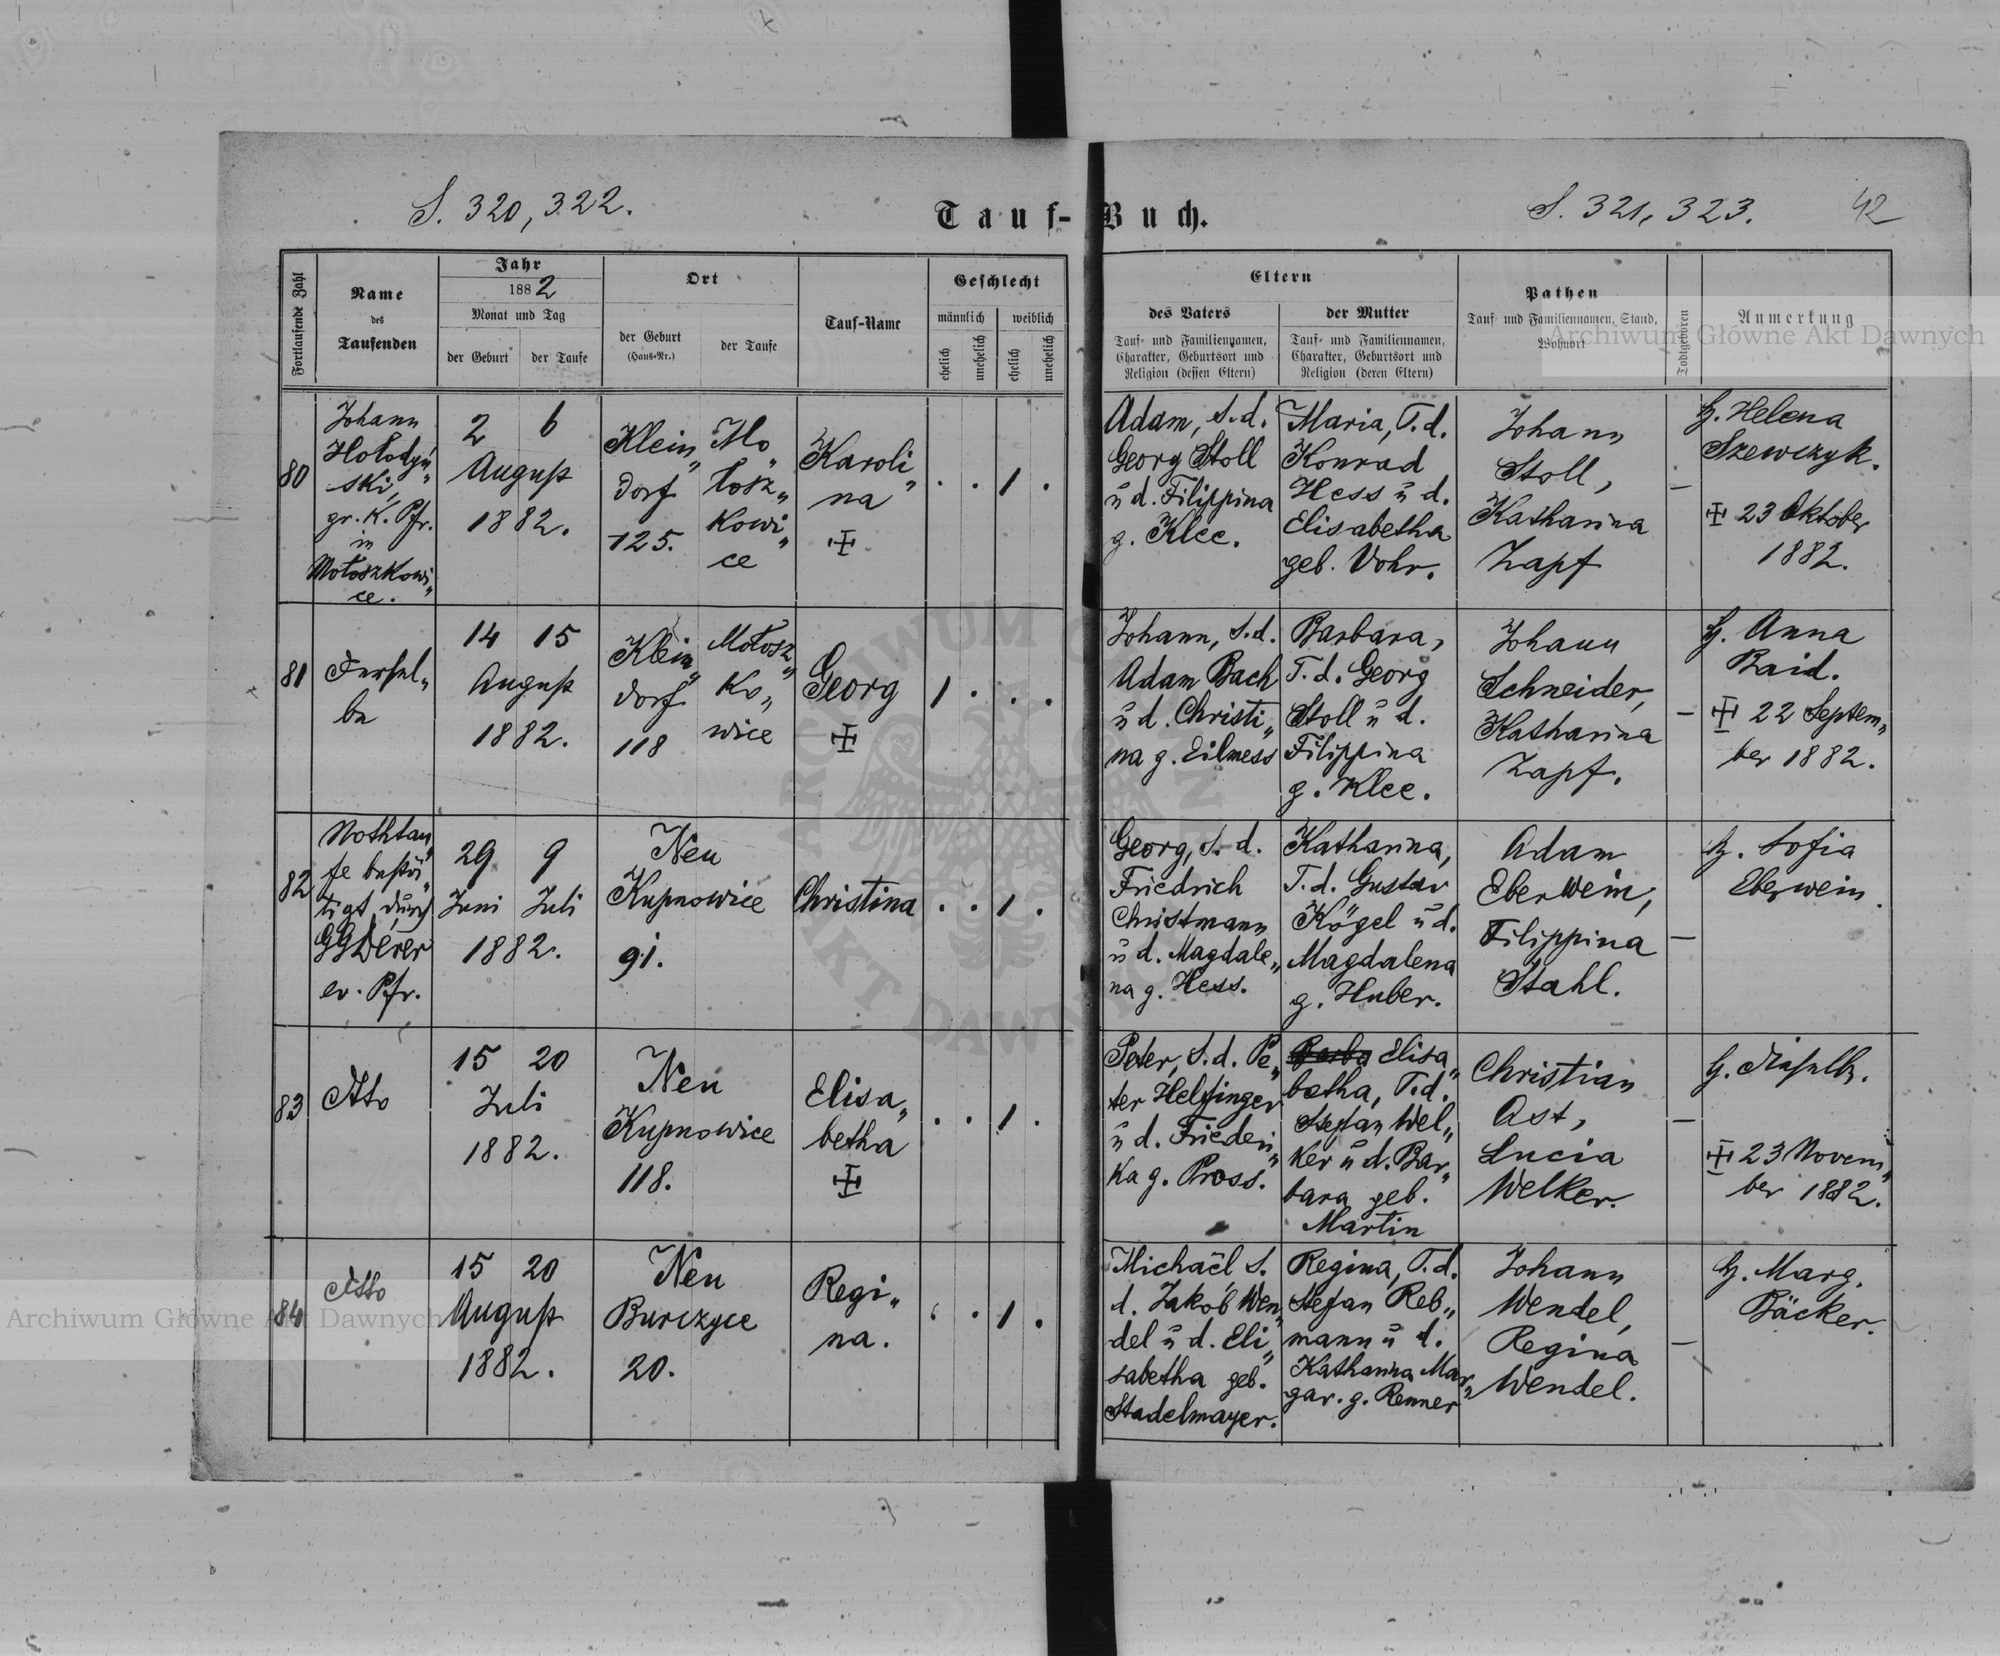 S. 320, 322.
Tauf-Buch.
S. 321, 323.
42
Fortlaufende Zahl
Name
des
Taufenden
Jahr
1882
Monat und Tag
der Geburt
der Taufe
Ort
der Geburt
(Haus-Nr.)
der Taufe
Tauf-Name
Geschlecht
männlich
weiblich
ehelich
unehelich
ehelich
unehelich
Eltern
des Vaters
Tauf- und Familiennamen,
Charakter, Geburtsort und
Religion (dessen Eltern)
der Mutter
Tauf- und Familiennamen,
Charakter, Geburtsort und
Religion (deren Eltern)
Pathen
Tauf- und Familiennamen, Stand,
Wohnort
Todtgeboren
Anmerkung
80
Johann
Hołodyń„
ski,
gr. k. Pfr.
in
Mołoszkowi„
ce.
2 6
August
1882.
Klein„
dorf
125.
Mo„
łosz„
kowi„
ce
Karoli„
na
1
Adam, S. d.
Georg Stoll
u d. Filippina
g. Klee.
Maria, T. d.
Konrad
Hess u d.
Elisabetha
geb. Vohr.
Johann
Stoll,
Katharina
Zapf
–
H. Helena
Szewczyk.
23 Oktober
1882.
81
Dersel„
be
14 15
August
1882.
Klein„
dorf
118
Mołosz„
ko„
wice
Georg
1
Johann, S. d.
Adam Bach
u d. Christi„
na g. Eilmess
Barbara,
T. d. Georg
Stoll u d.
Filippina
g. Klee.
Johann
Schneider,
Katharina
Zapf.
–
H. Anna
Baid.
22 Septem„
ber 1882.
82
Nothtau„
fe bestä„
tigt durch
ev. Pfr.
29 9
Juni Juli
1882.
Neu
Kupnowice
91.
Christina
1
Georg, S. d.
Friedrich
Christmann
u d. Magdale„
na g. Hess.
Katharina,
T. d. Gustav
Kögel u d.
Magdalena
g. Huber.
Adam
Eberwein,
Filippina
Stahl.
–
H. Sofia
Eberwein.
83
Dtto
15 20
Juli
1882.
Neu
Kupnowice
118.
Elisa„
betha
1
Peter, S. d. Pe„
ter Helfinger
u d. Friederi„
ka g. Pross.
Barba Elisa„
betha, T. d.
Stefan Wel„
ker u d. Bar„
bara geb.
Martin
Christian
Ast,
Lucia
Welker.
–
H. Dieselbe.
23 Novem„
ber 1882.
84
Dtto
15 20
August
1882.
Neu
Burczyce
20.
Regi„
na.
1
Michaël S.
d. Jakob Wen„
del u d. Eli„
sabetha geb.
Stadelmayer.
Regina, T. d.
Stefan Reb„
mann u d.
Katharina Mar„
gar. g. Renner
Johann
Wendel,
Regina
Wendel.
–
H. Marg.
Bäcker.
Archiwum Główne Akt Dawnych
Archiwum Główne Akt Dawnych